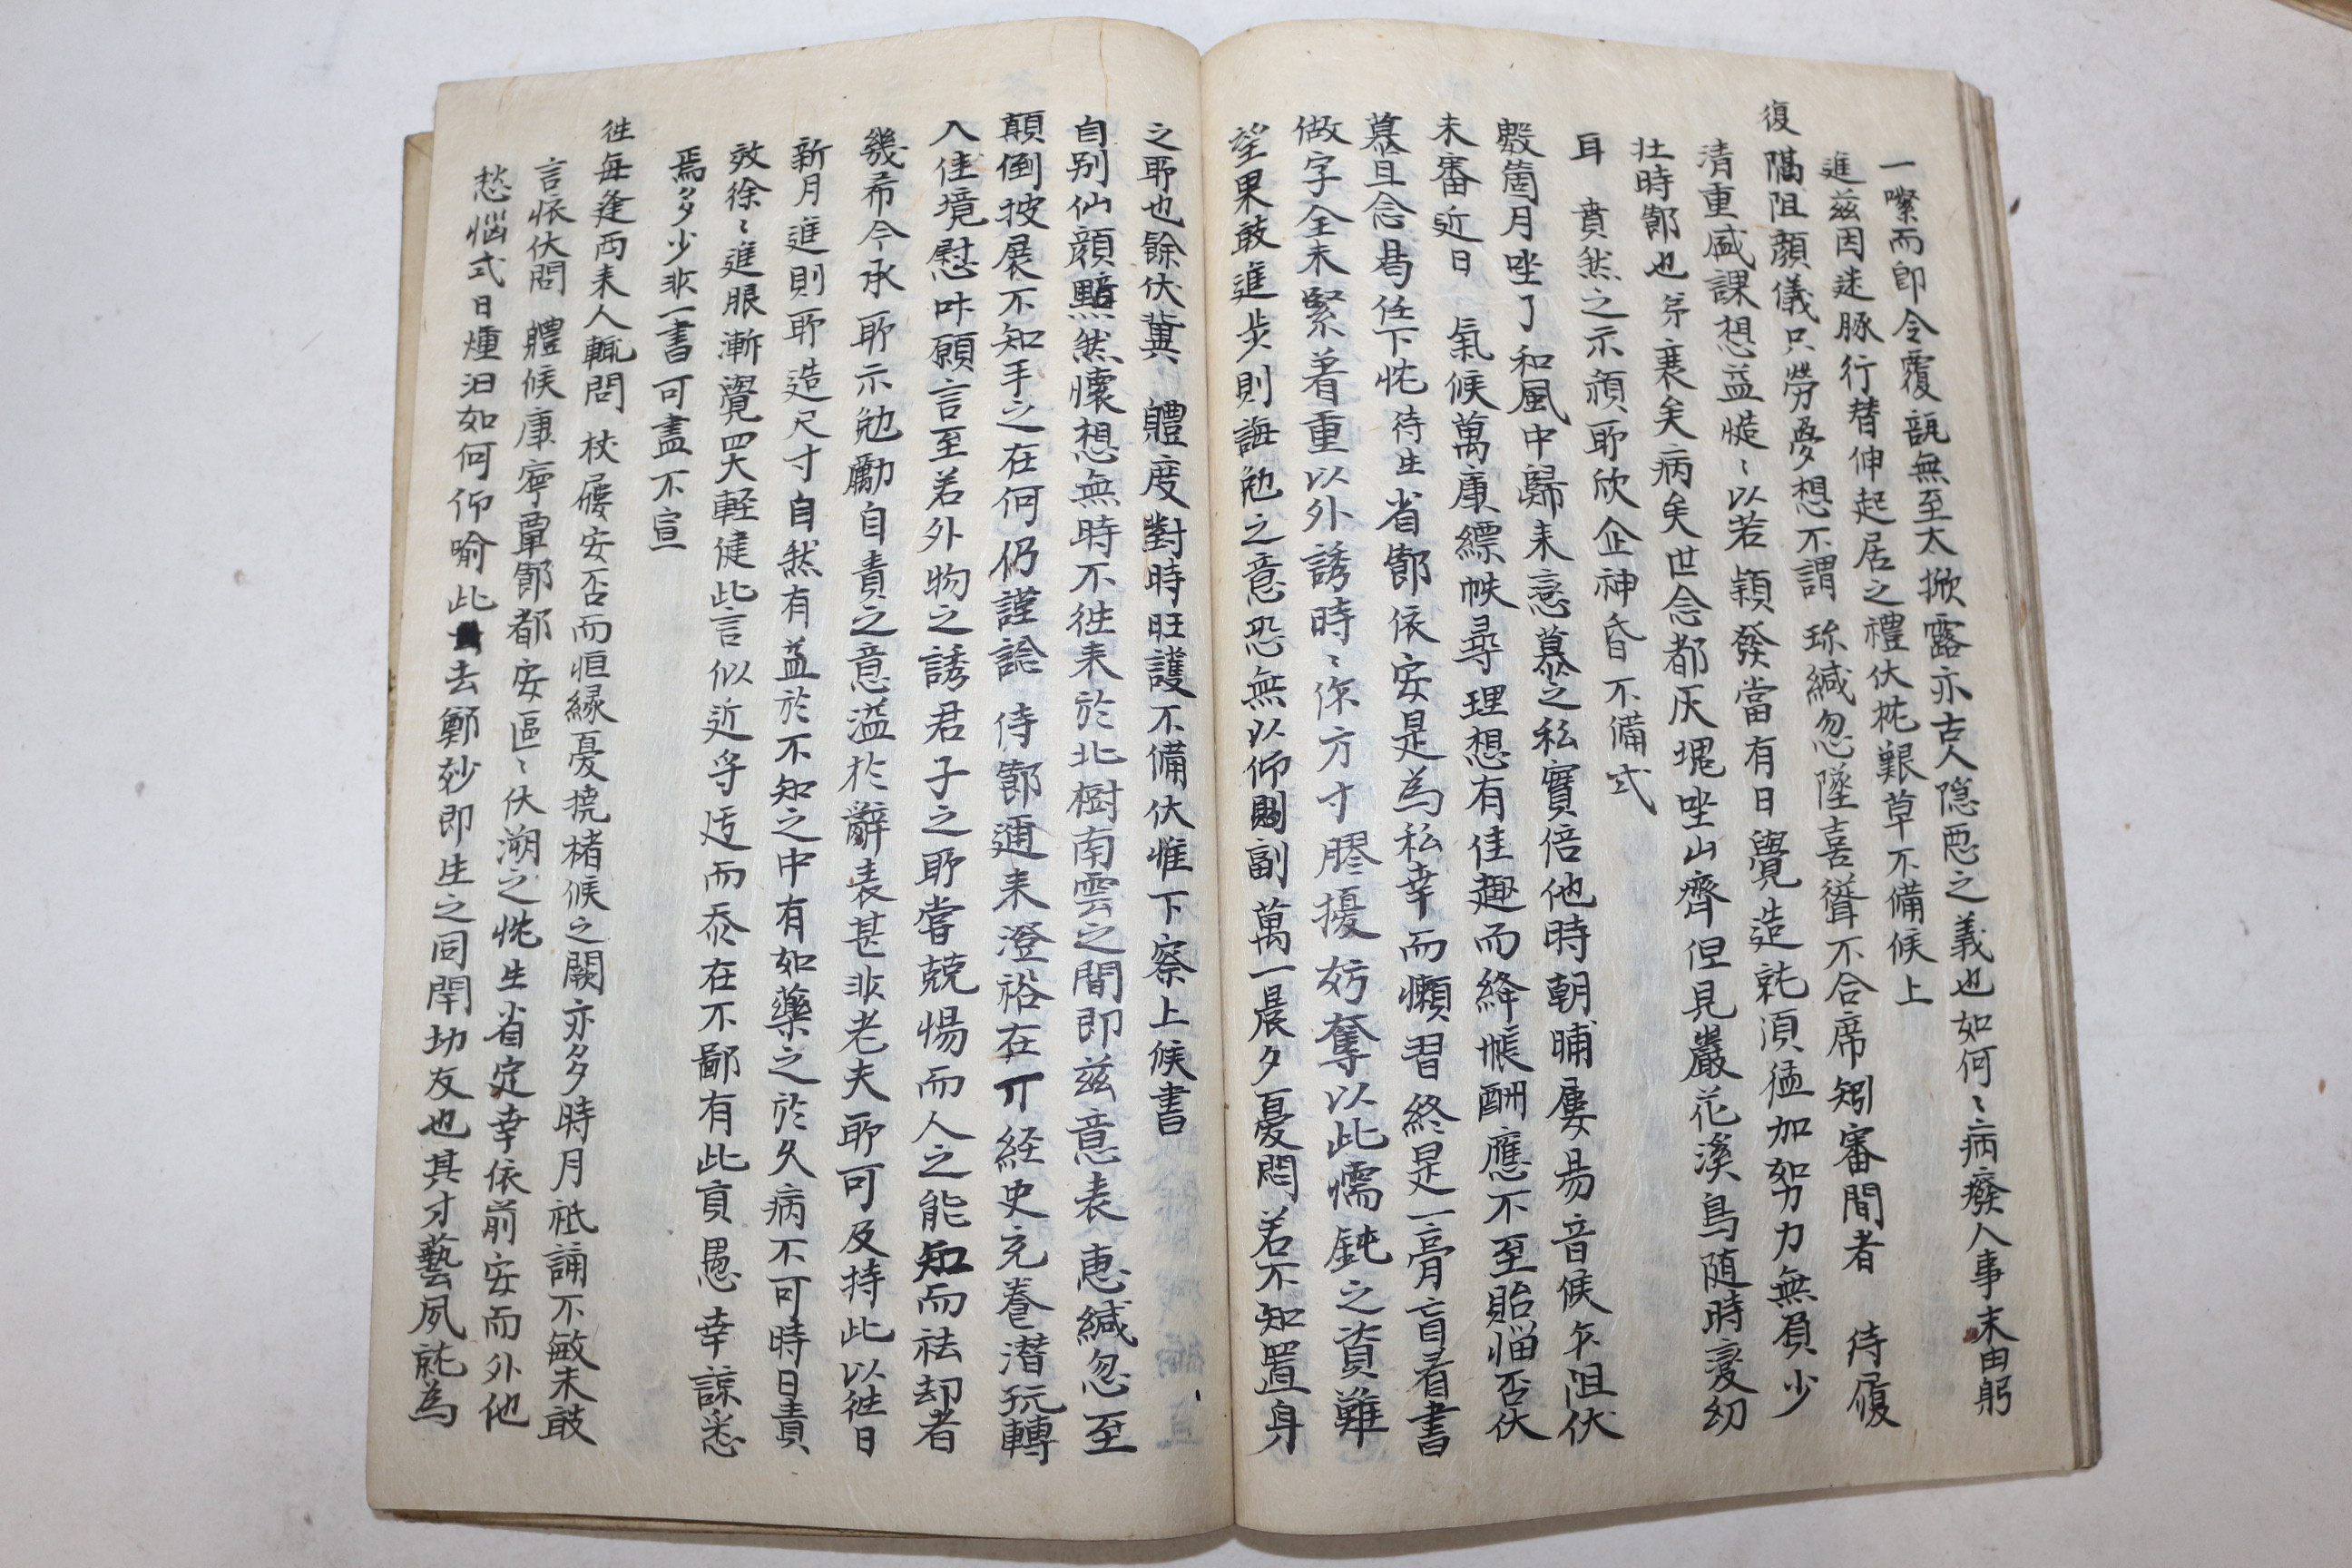 一嚟而卽令覆瓿無至太掀露亦古人隐惡之義也如何〻病癈人事末由躬
進兹因迷豚行替伸起居之禮伏枕艱草不備候上
復 隔阻顔儀只勞夢想不謂 珎緘忽墜喜聳不合席矧審間者 侍履
清重感課想益慥〻以若穎發當有日覺造就湏猛加努力無負少
壮時節也弟衰矣病矣世念都灰塊㘴山齊但見巖花溪鳥随時変幻
耳 賁然之示湏耶欣企神昏不備式
數箇月㘴了 和風中歸来戀慕之私實倍他時朝晡屢易音候乍阻伏
未審近日 氣候萬康縹帙尋理想有佳趣而絳帳酬應不至貽惱否伏
慕且念曷任下忱侍生省節依安是為私幸而懶習終是一膏盲看書
做字全未緊着重以外誘時〻你方寸膠擾妨奪以此懦鈍之資難
望果敢進步則誨勉之意恐無以仰副萬一晨夕憂悶若不知置身
之耶也餘伏冀 軆度對時旺護不備伏惟下察上候書
自别仙顔黯然懐想無時不徃来於北樹南雲之間即兹意表 恵緘忽至
顛倒披展不知手之在何仍謹諗 侍節迪来澄裕在丌経史充養潜玩轉
入佳境慰咔願言至若外物之誘君子之耶嘗兢惕而人之能知而袪却者
幾希今承耶示勉勵自責之意溢於辭表甚非老夫耶可及持此以徃日
新月進則耶造尺寸自然有益於不知之中有如藥之於久病不可時日責
效徐〻進服漸覺四大軽健此言似近乎迃而忝在不鄙有此貢愚幸諒悉
焉多少非一書可盡不宣
徃每逢西来人輒問 杖屨安否而恒縁憂撓楮候之闕亦多時月祗誦不敏未敢
言恢伏問 軆候康寧覃節都安區〻伏溯之忱生省定幸依前安而外他
愁惱式日煙汩如何仰喻此去鄭玅即生之同閈切友也其才藝夙就為